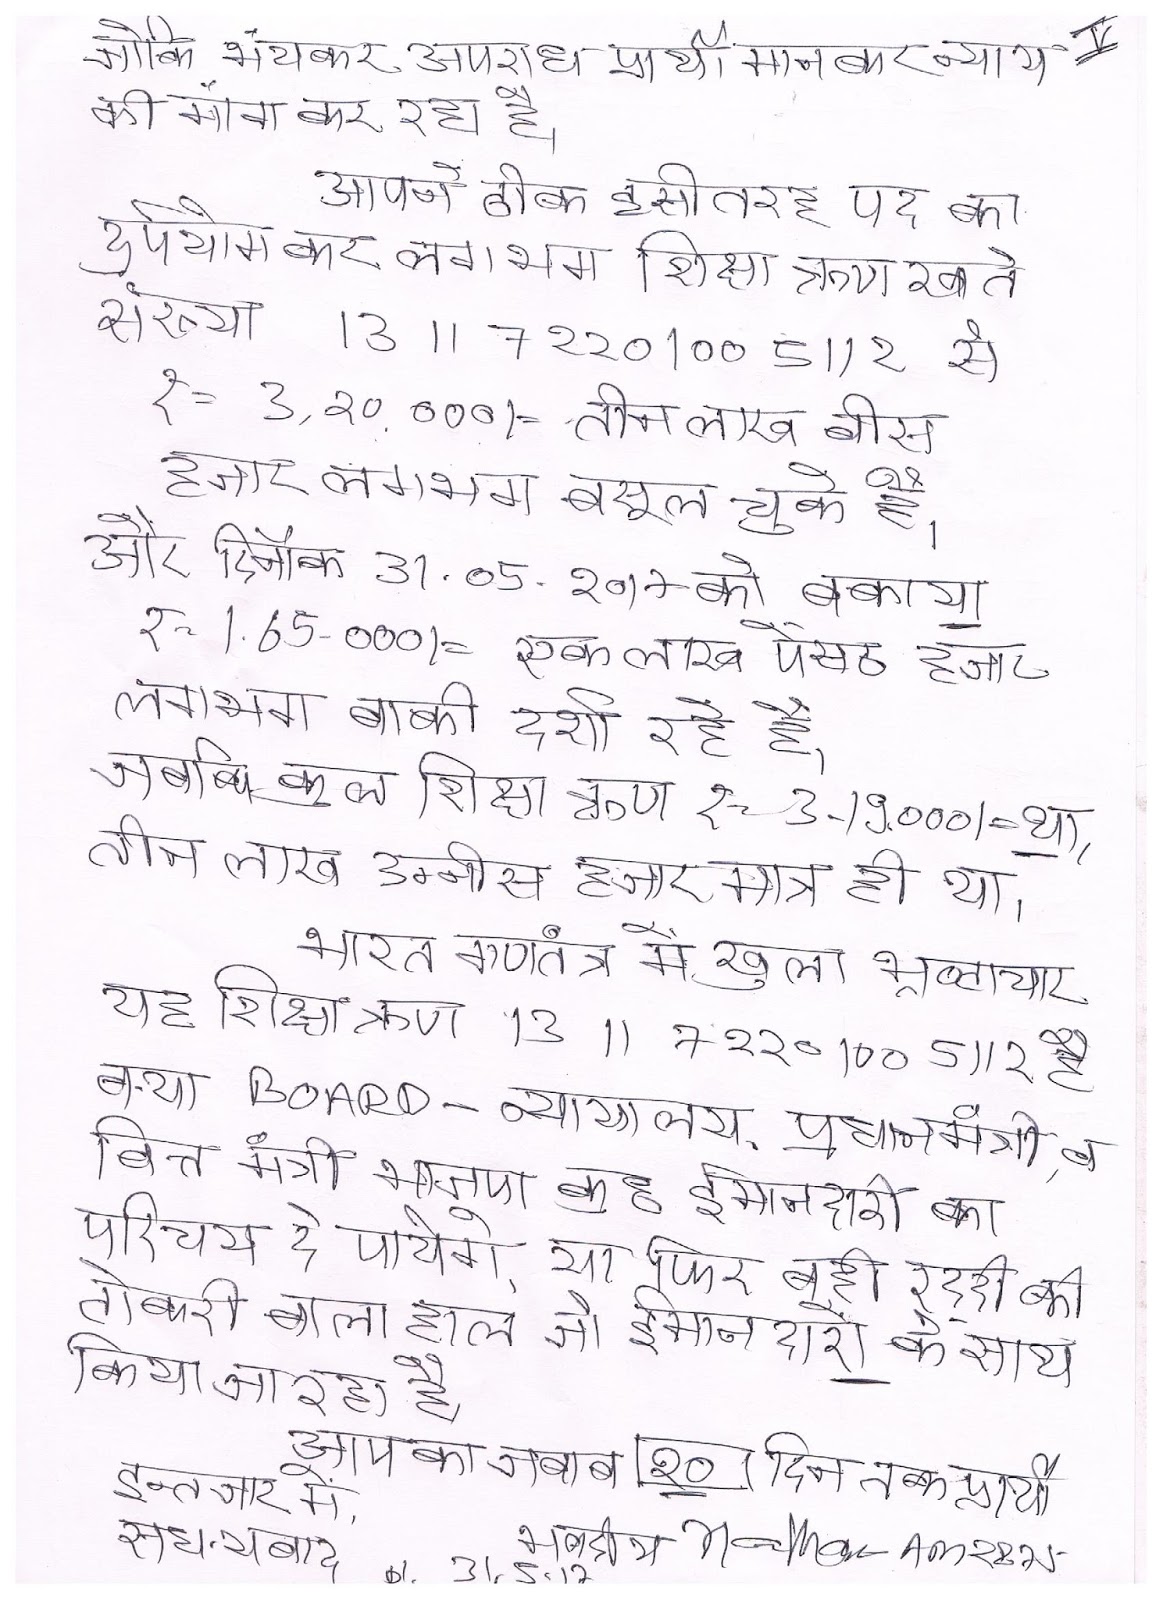 जोकि भंयकर अपराध प्रार्थी मानकर न्याय IV
की माँग कर रहा है,
आपने ठीक इसी तरह पद का
दुर्पयोग कर लगभग शिक्षा ऋण खाते
संख्या 13 11 7220100 5112 से
रू= 3,20,000/= तीन लाख बीस
हजार लगभग बसूल चुके है,
और दिनाँक 31.05.2017 को बकाया
रू= 1.65-000/= एक लाख पैंसठ हजार
लगभग बाकी दर्शा रहे है,
जबकि कुल शिक्षा ऋण रू= 3-19.000/= था,
तीन लाख उन्नीस हजार मात्र ही था।
भारत गणतंत्र में खुला भ्रष्टाचार
यह शिक्षा ऋण 13 11 7220100 5112 है
क्या BOARD - न्यायालय, प्रधानमंत्री, व
बित्त मंत्री भाजपा कुछ ईमानदारी का
परिचय दे पायेगे, या फिर बही रद्दी की
टोकरी बाला हाल जो ईमानदारों के साथ
किया जा रहा है,
आपका जबाब २० दिन तक प्रार्थी
इन्तजार में,
सधन्यबाद भवदीय
दि. 31.5.17